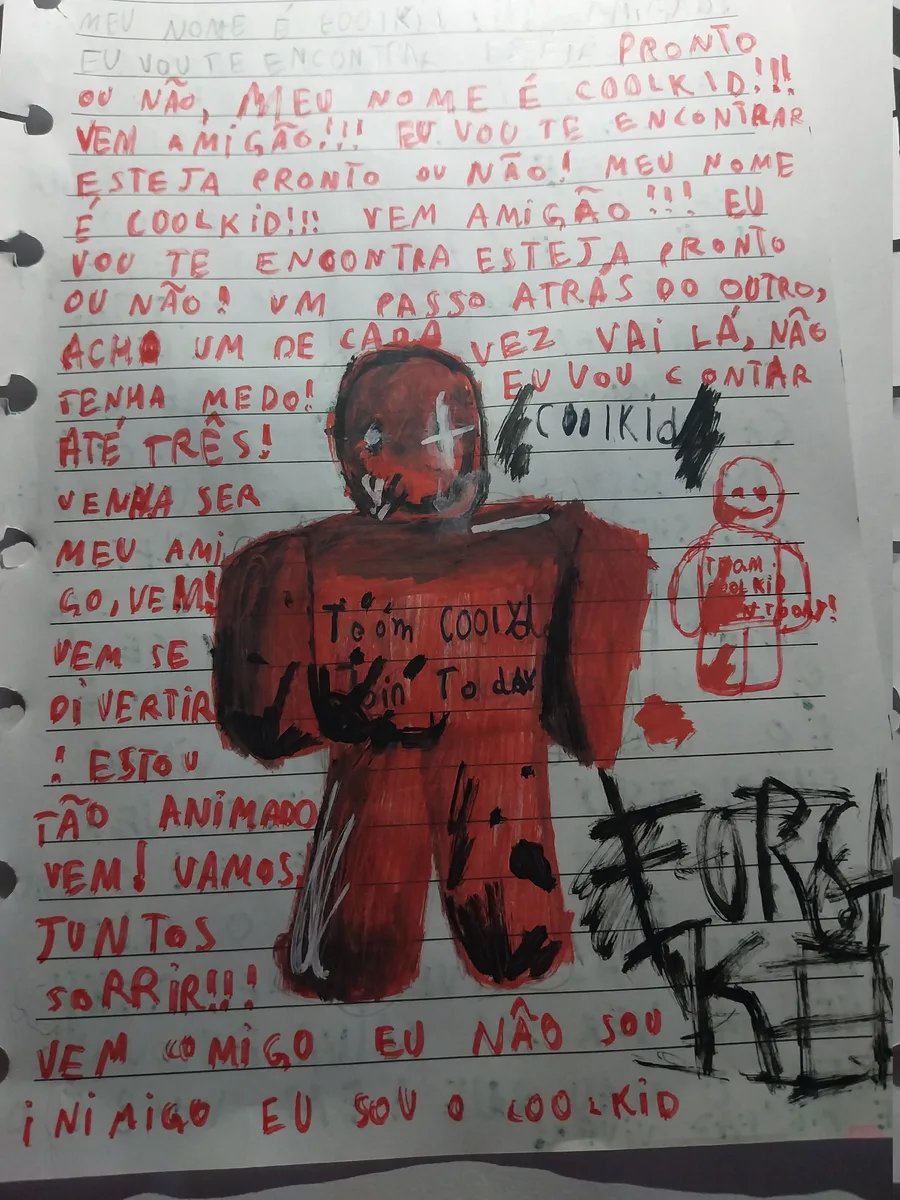 MEU NOME É COOLKID!!!
EU VOU TE ENCONTRAR ESTEJA PRONTO
OU NÃO, MEU NOME É COOLKID!!!
VEM AMIGÃO!!! EU VOU TE ENCONTRAR
ESTEJA PRONTO OU NÃO! MEU NOME
É COOLKID!!! VEM AMIGÃO!!! EU
VOU TE ENCONTRA ESTEJA PRONTO
OU NÃO! UM PASSO ATRÁS DO OUTRO,
ACHO UM DE CADA VEZ VAI LÁ, NÃO
TENHA MEDO! EU VOU CONTAR
ATÉ TRÊS!
COOLKid
VENHA SER
MEU AMI
GO, VEM!
VEM SE
DIVERTIR
! ESTOU
TÃO ANIMADO
VEM! VAMOS
JUNTOS
SORRIR!!!
VEM COMIGO EU NÃO SOU
INIMIGO EU SOU O COOLKID
Team COOlKid
Join Today
Team
COOLKID